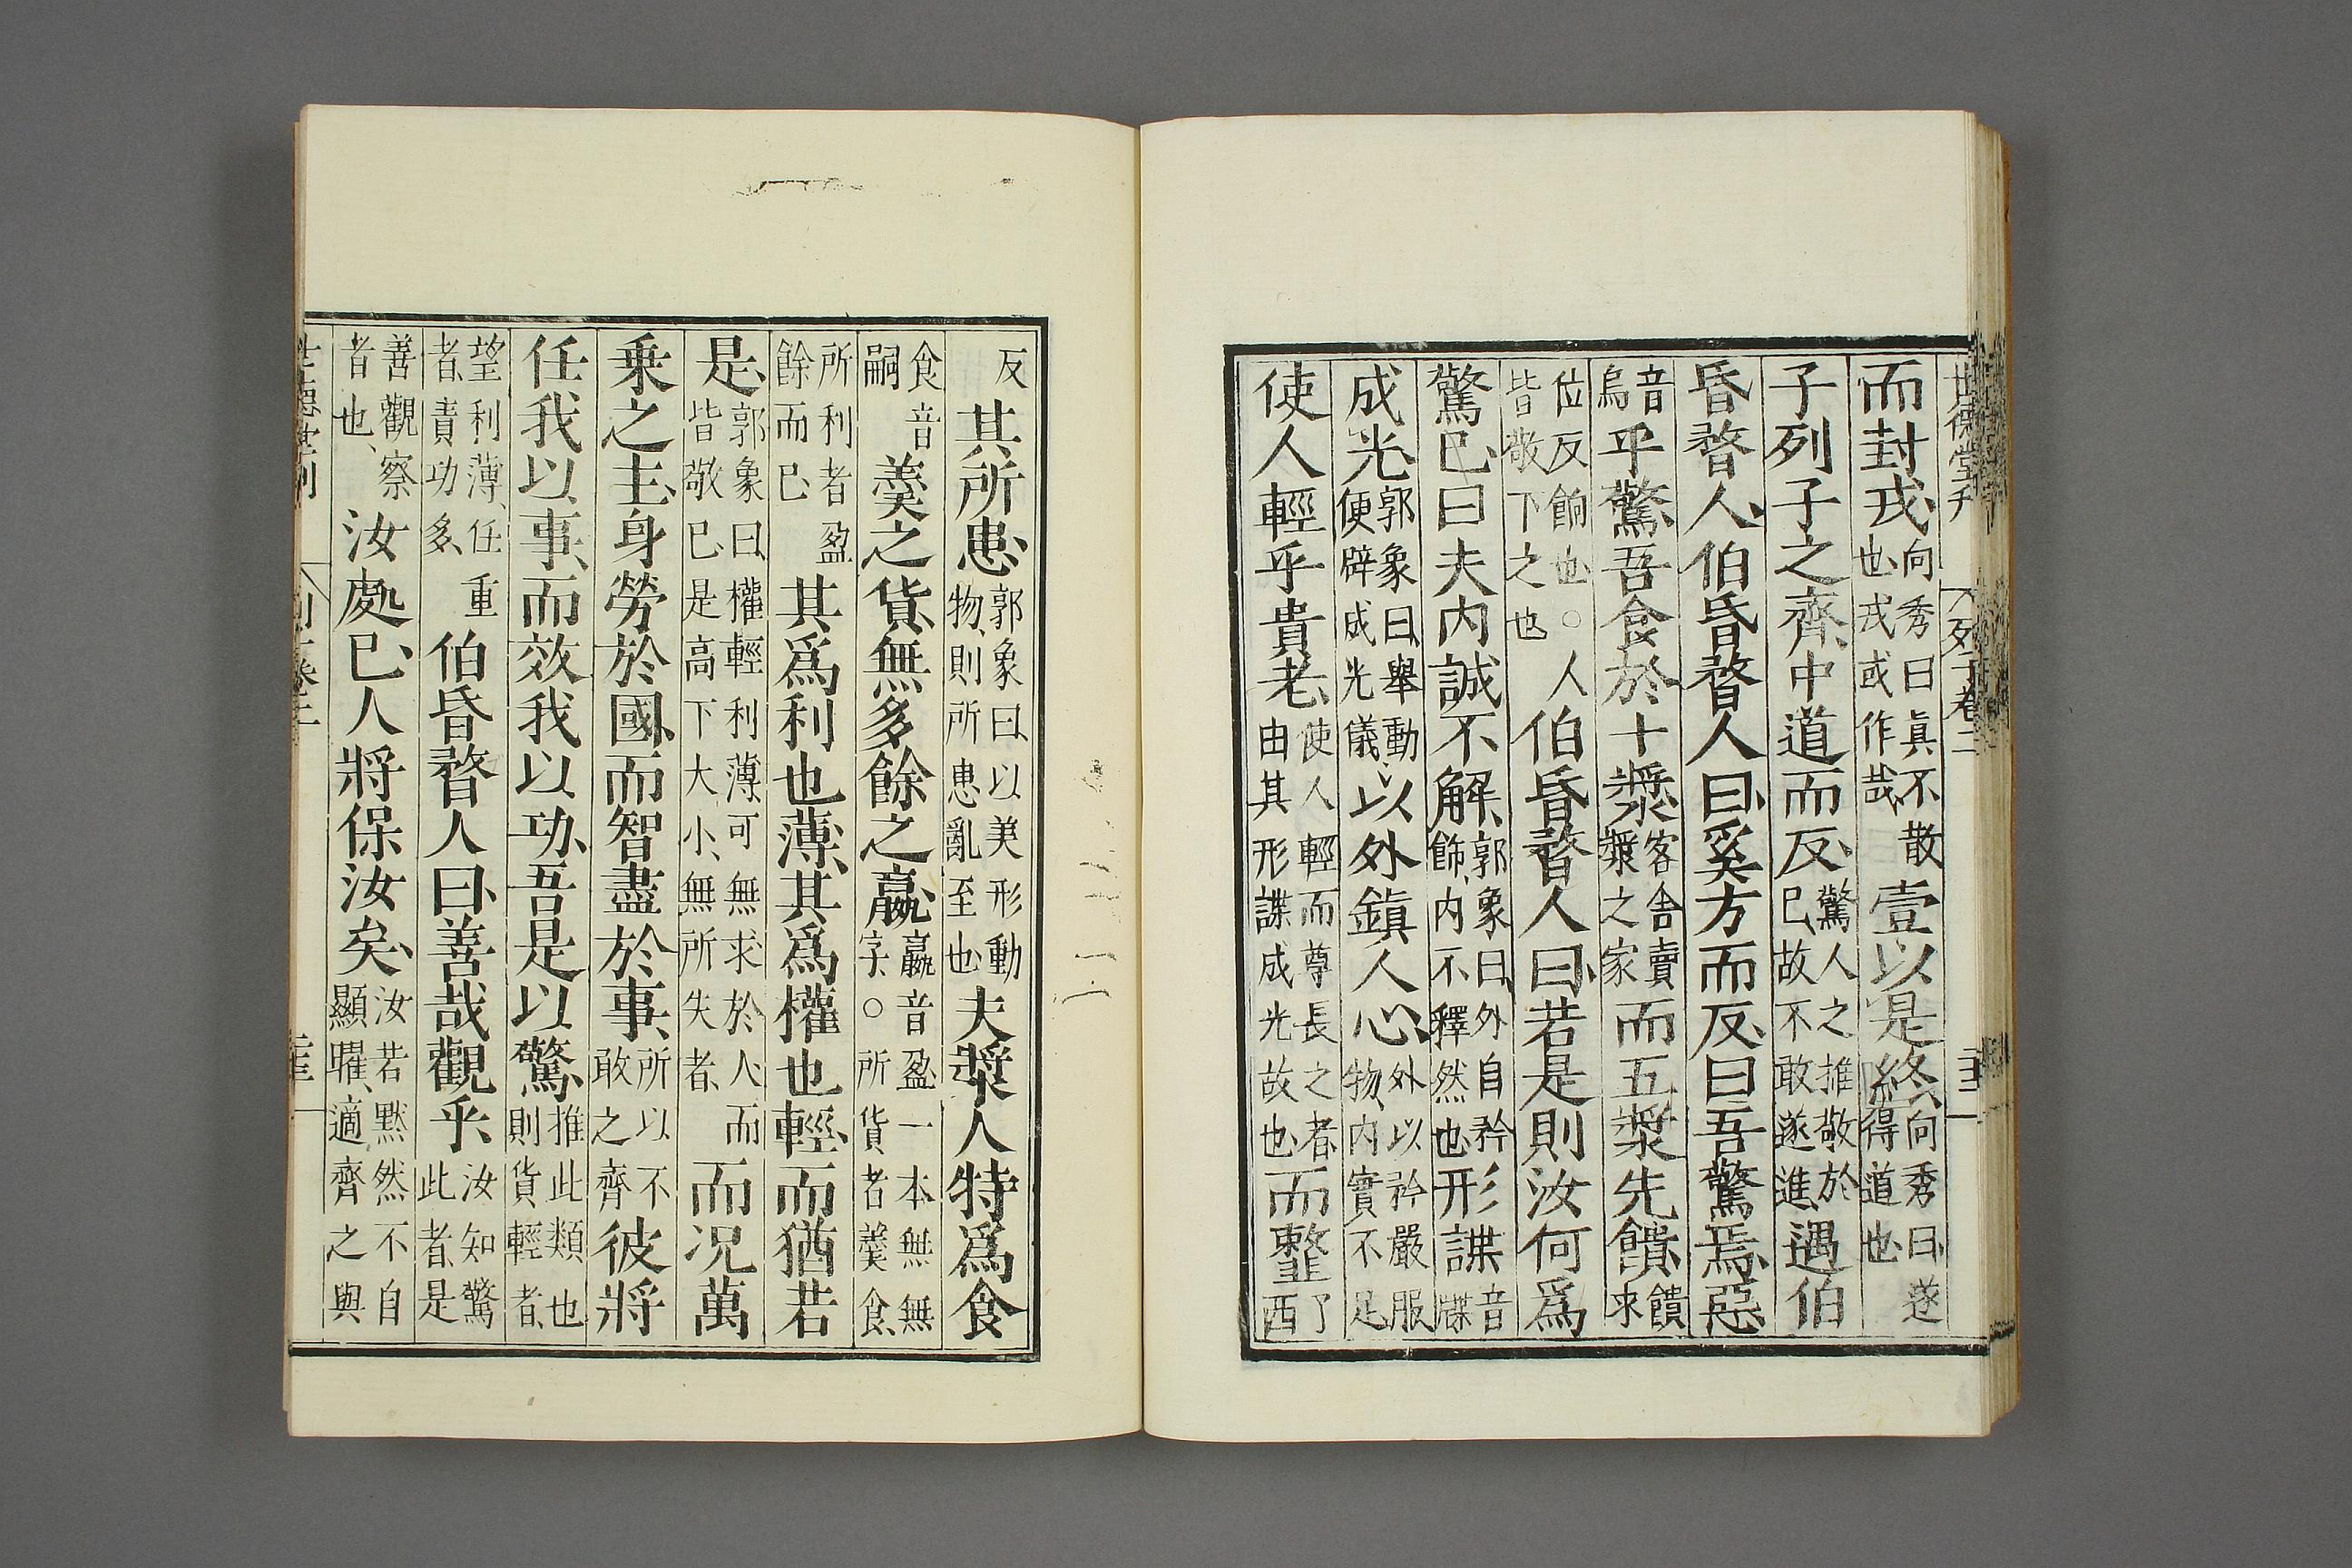 世德堂刊　列子卷二　二十二
而封戎向秀曰眞不散也戎或作哉壹以是終向秀曰遂得道也
子列子之齊中道而反驚人之推敬於巳故不敢遂進遇伯
昏瞀人伯昏瞀人曰奚方而反曰吾驚焉惡
音烏乎驚吾食於十漿客舍賣漿之家而五漿先饋饋求
位反餉也○人皆敬下之也伯昏瞀人曰若是則汝何爲
驚巳曰夫内誠不解郭象曰外自矜飾内不釋然也形諜音牒
成光郭象曰舉動便辟成光儀以外鎮人心外以矜嚴服物内實不足
使人輕乎貴老使人輕而尊長之者由其形諜成光故也而䪠了西
反其所患郭象曰以美形動物則所患亂至也夫漿人特爲食
食音嗣羹之貨無多餘之贏贏音盈一本無無字○所貨者羹食
所利者盈餘而已其爲利也薄其爲權也輕而猶若
是郭象曰權輕利薄可無求於人而皆敬巳是高下大小無所失者而况萬
乗之主身勞於國而智盡於事所以不敢之齊彼將
任我以事而效我以功吾是以驚推此類也則貨輕者
望利薄任重者責功多伯昏瞀人曰善哉觀乎汝知驚此者是
善觀察者也汝處巳人將保汝矣汝若黙然不自顯曜適齊之與